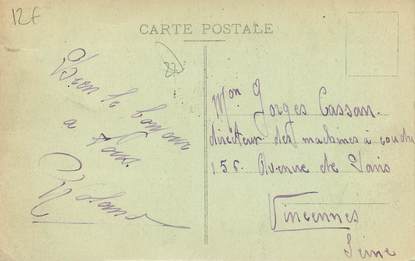 12f
CARTE POSTALE
Bien le bonjour
a tous
Mon Georges Cassan
directeur des machines à coudre
155 Avenue de Paris
Vincennes
Seine